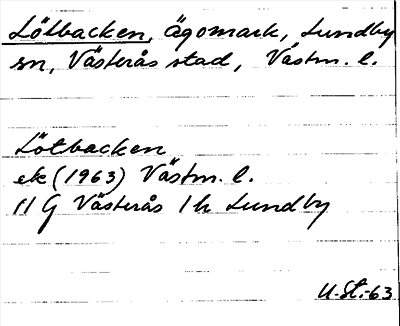 Lötbacken, ägomark, Lundby
sn, Västerås stad, Västm. l.
Lötbacken
ek (1963) Västm. l.
11 G Västerås 1 h Lundby
U. St. -63